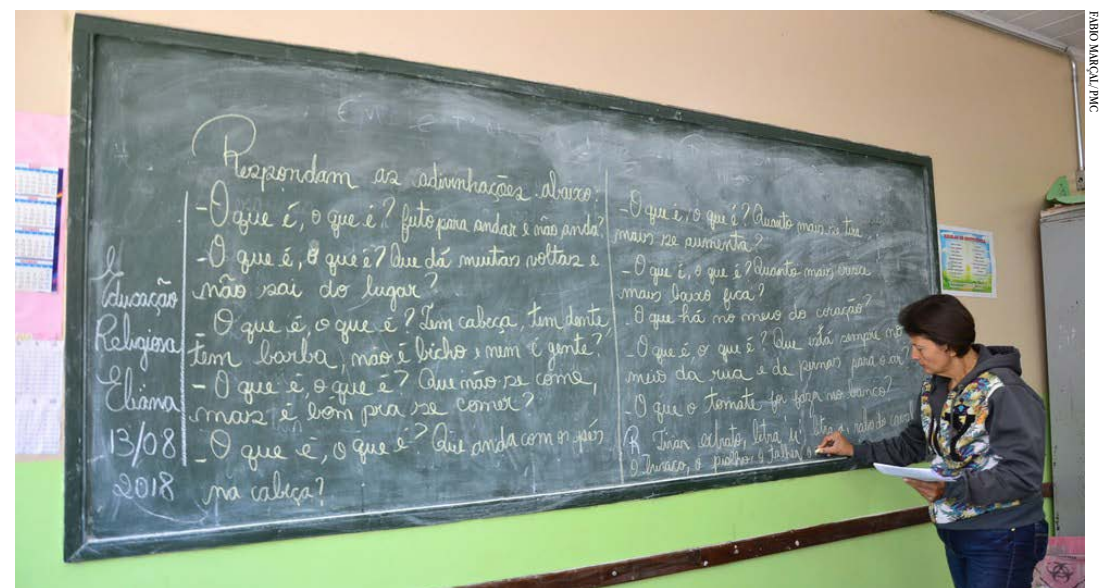 Educação
Religiosa
Eliana
13/08
2018
Respondam as adivinhações abaixo:
- O que é, o que é? feito para andar e não anda?
- O que é, o que é? Que dá muitas voltas e
não sai do lugar?
- O que é, o que é? Tem cabeça, tem dente,
tem barba, não é bicho e nem é gente?
- O que é, o que é? Que não se come,
mais é bom pra se comer?
- O que é, o que é? Que anda com os pés
na cabeça?
- O que é, o que é? Quanto mais se tira
mais se aumenta?
- O que é, o que é? Quanto mais cresce
mais baixo fica?
- O que há no meio do coração?
- O que é o que é? Que está sempre no
meio da rua e de pernas para o ar?
- O que o tomate foi fazer no banco?
R Tirar extrato, letra u, letra a, rabo do cavalo
O buraco, o piolho, o talher, o
FABIO MARÇAL/PMC